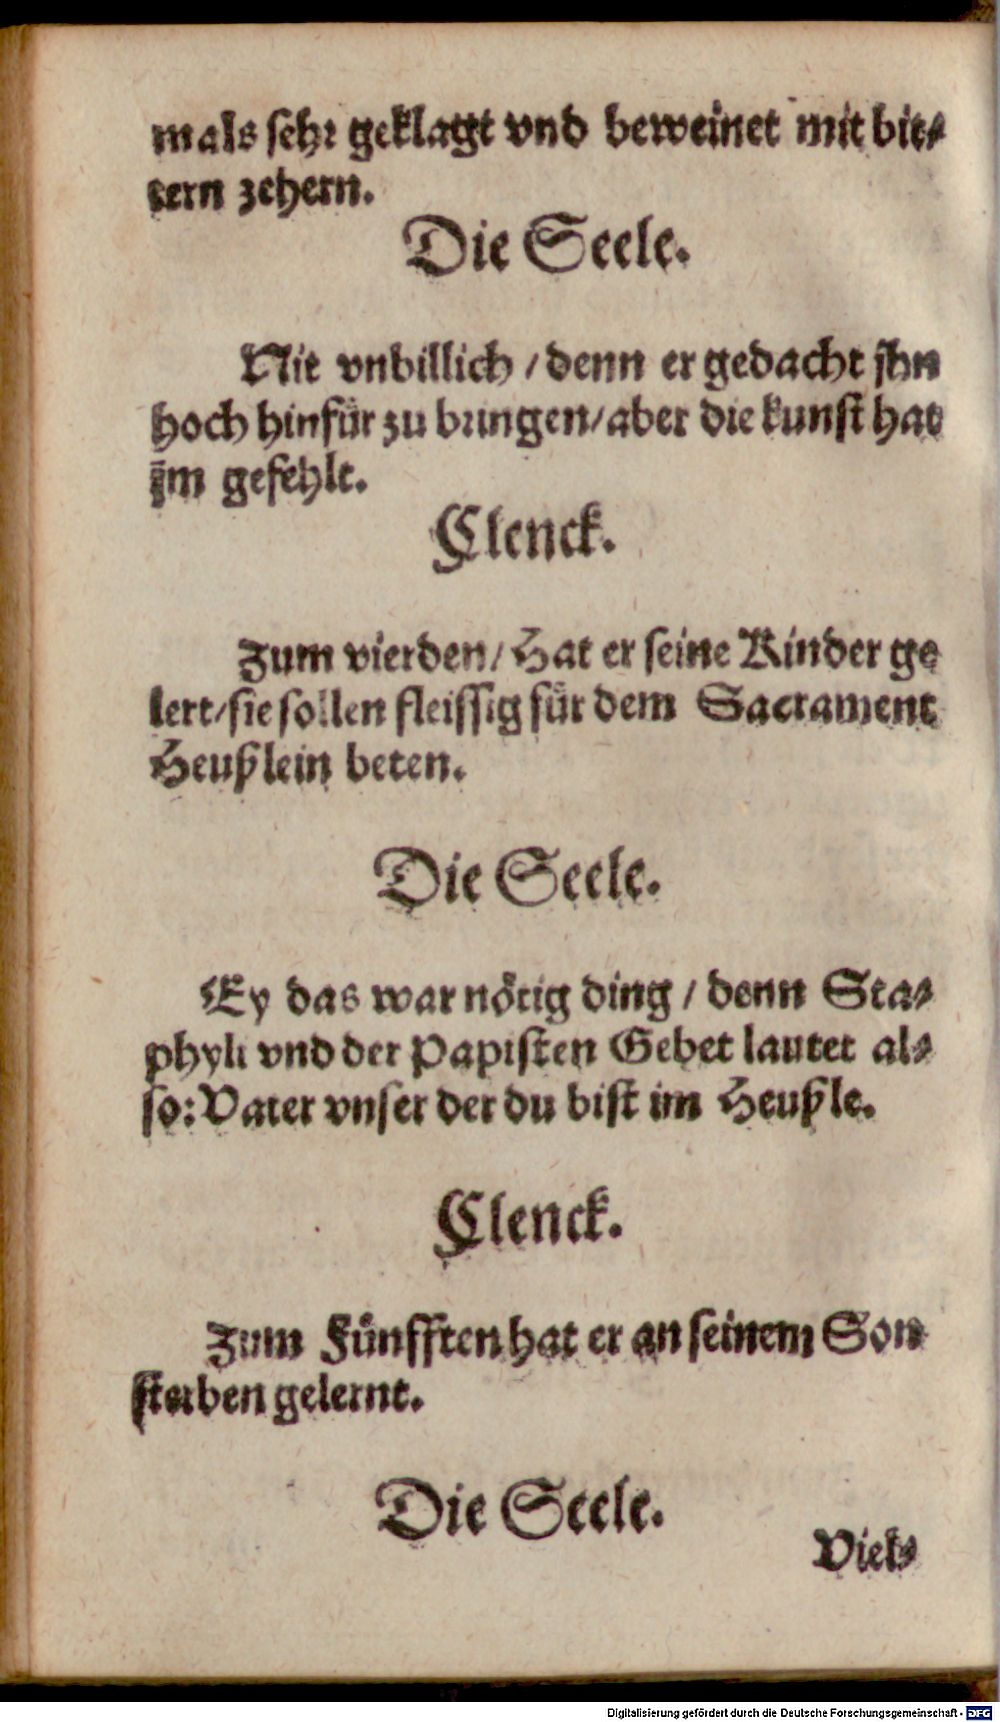 mals sehr geklagt vnd beweinet mit bit⸗
tern zehern.
Die Seele.
Nit vnbillich / denn er gedacht jhn
hoch hinfür zu bringen / aber die kunst hat
jm gefehlt.
Clenck.
Zum vierden / Hat er seine Kinder ge
lert / sie sollen fleissig für dem Sacrament
Heußlein beten.
Die Seele.
Ey das war nötig ding / denn Sta⸗
phyli vnd der Papisten Gebet lautet al⸗
so: Vater vnser der du bist im Heußle.
Clenck.
Zum Fünfften hat er an seinem Son
sterben gelernt.
Die Seele.
Viel⸗
Digitalisierung gefördert durch die Deutsche Forschungsgemeinschaft - DFG